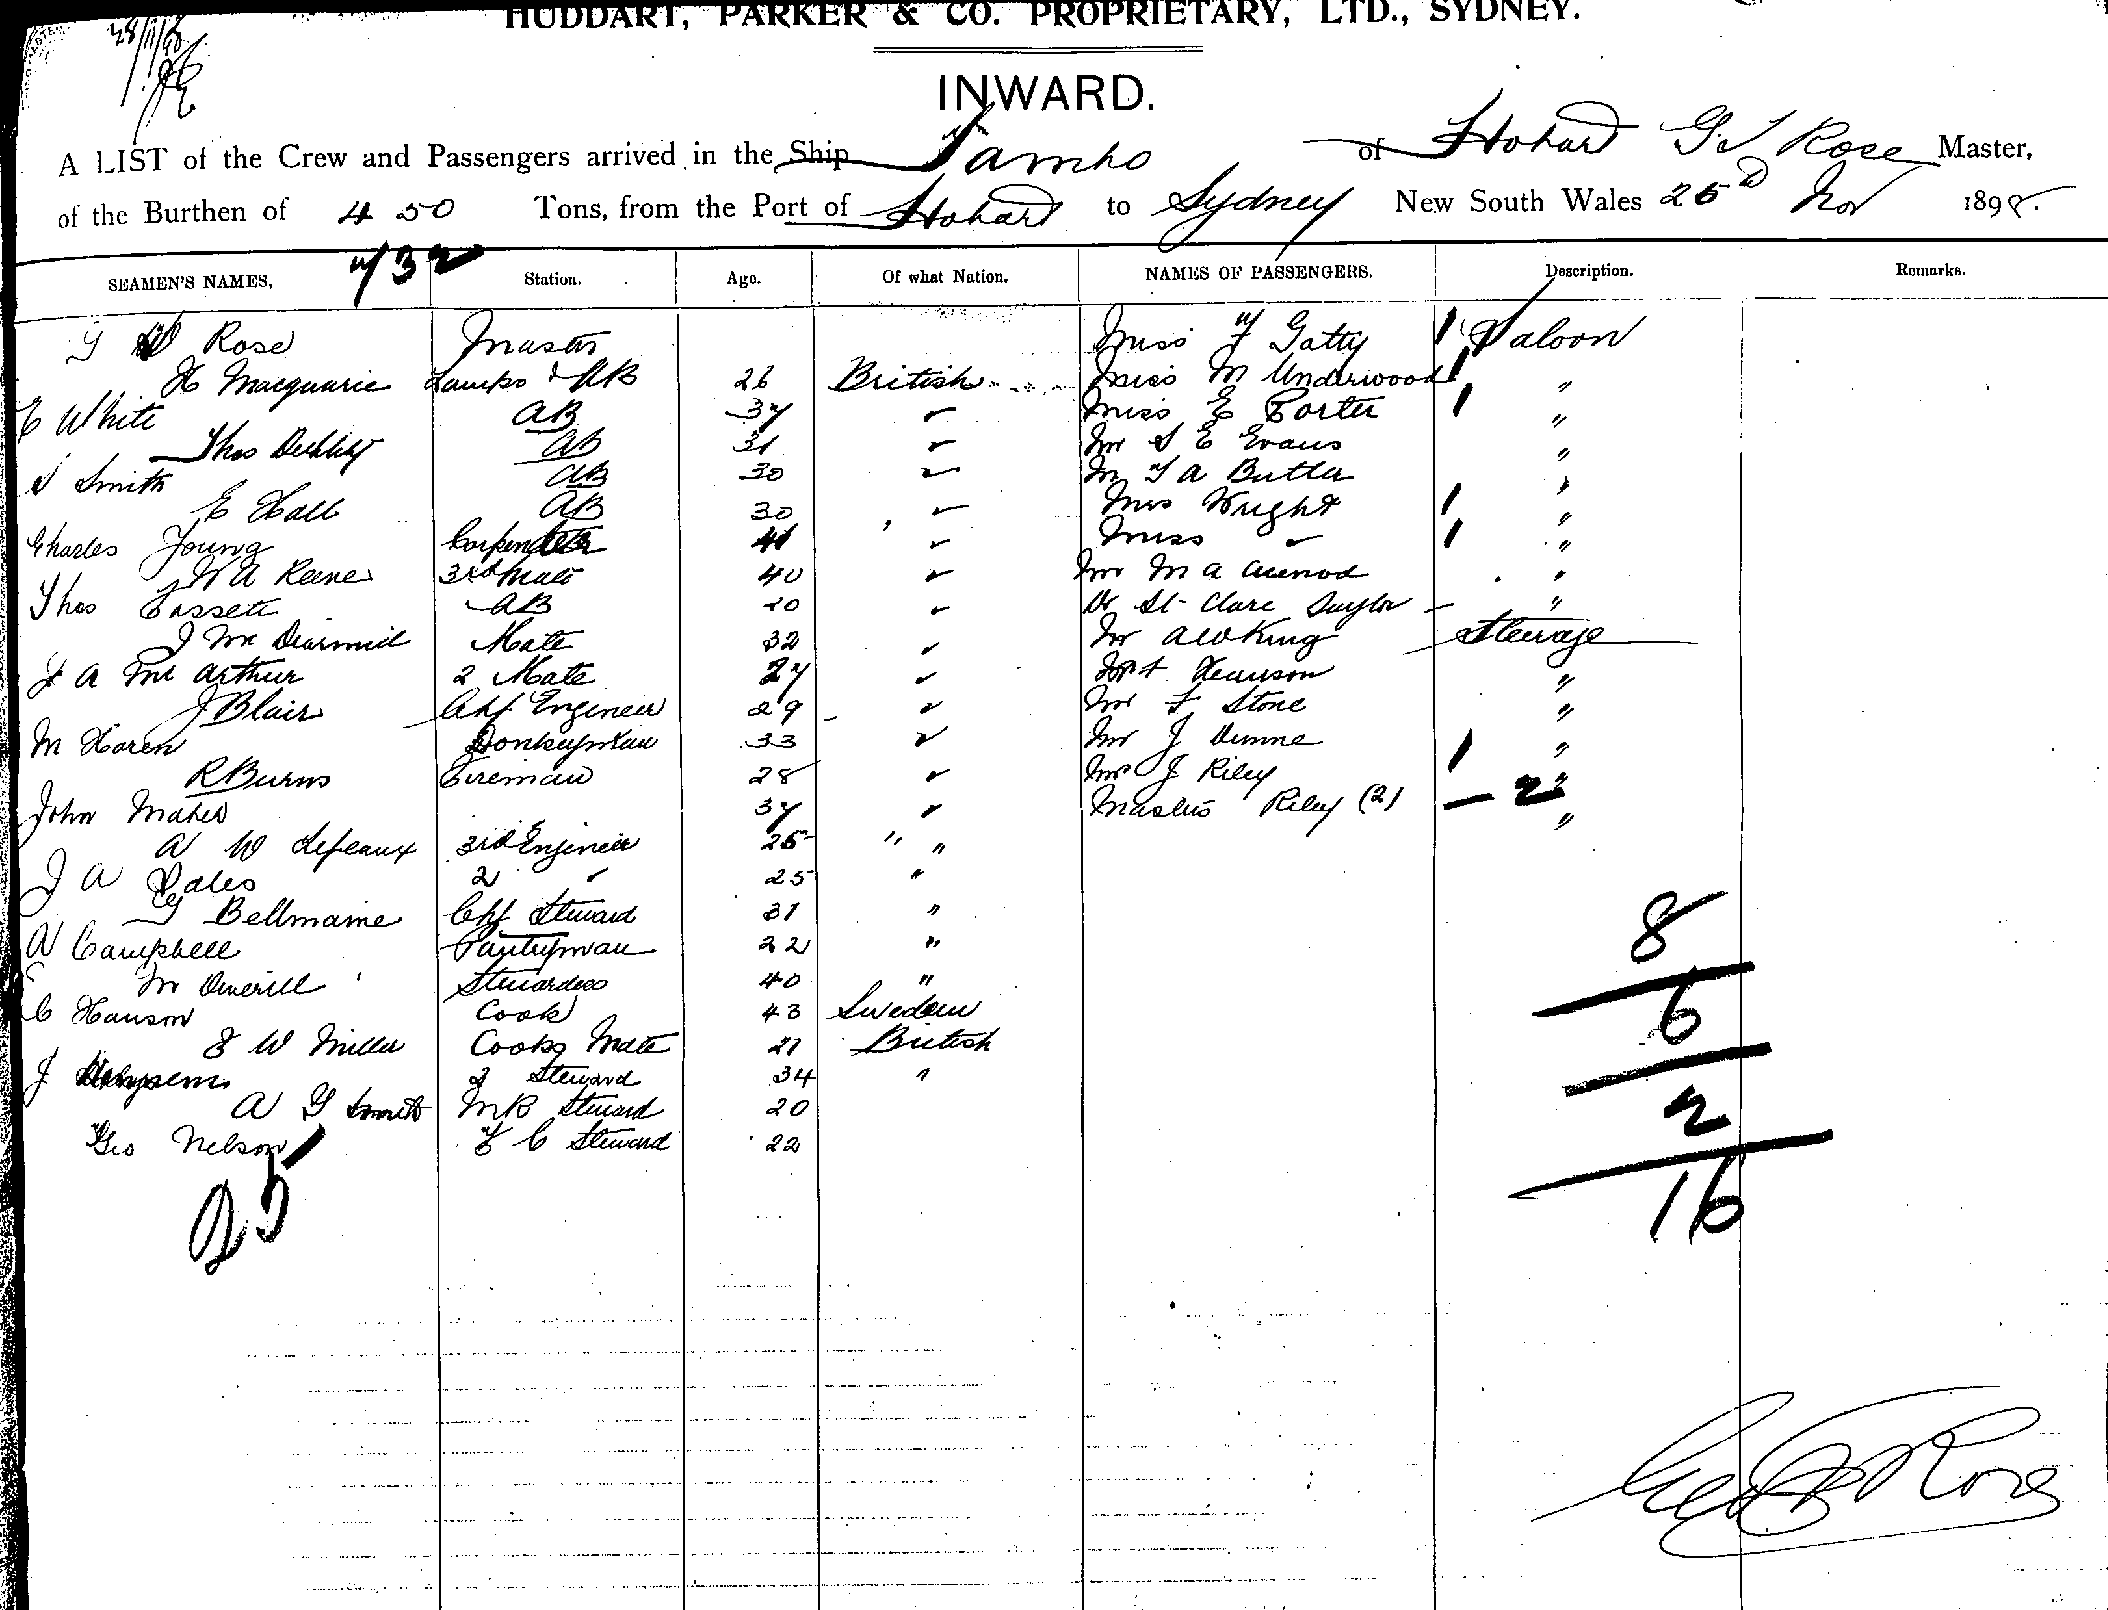 HUDDART, PARKER & CO. PROPRIETARY, LTD., SYDNEY.
28/11/98
INWARD.
A LIST of the Crew and Passengers arrived in the Ship Tambo of Hobart G J Rose Master,
of the Burthen of 450 Tons, from the Port of Hobart to Sydney New South Wales 25 Nov 1898.
SEAMEN'S NAMES, Station. Age. Of what Nation. NAMES OF PASSENGERS. Description. Remarks.
G Rose Master Miss F Gatty 1 Saloon
H Macquarie Lamps & AB 26 British Miss M Underwood 1 "
E White AB 37 " Miss E Porter 1 "
Thos AB 31 " Mr S E Evans "
S Smith AB 30 " Mr T A Butler "
E Hall AB 30 " Mrs Wright 1 "
Charles Young Carpenter 41 " Miss " 1 "
W A Keene 3rd Mate 40 " Mr M A "
Thos Fassett AB 20 " Dr St Clare Taylor "
J Mc Diarmid Mate 32 " Mr A W King Steerage
J A Mc Arthur 2 Mate 27 " "
J Blair Chf Engineer 29 " Mr F Stone "
M Horen Donkeyman 33 " Mr J Dunne "
R Burns Fireman 28 " Mrs J Riley 1 "
John Maher 37 " Masters Riley (2) — 2 "
A W Lefeaux 3rd Engineer 25 " "
J A Dales 2 " 25 "
G Bellmaine Chf Steward 31 "
A Campbell Pantryman 22 "
M Stewardess 40 "
C Hanson Cook 43 Sweden
F W Miller Cooks Mate 21 British
J 2 Steward 34 "
A G Smith M R Steward 20
Geo Nelson F C Steward 22
25
8
6
2
16
Geo J Rose